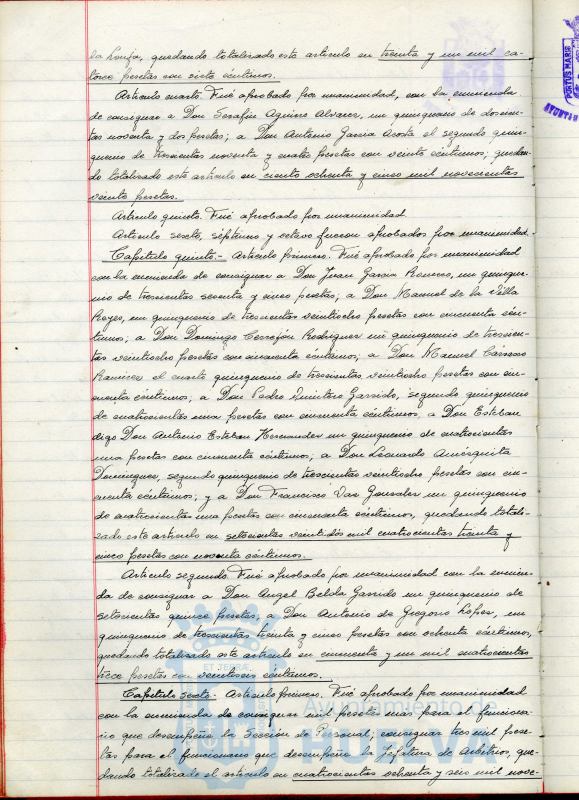 la Lonja, quedando totalizado este articulo en treinta y un mil ca-
torce pesetas con siete céntimos.
Articulo cuarto. Fué aprobado por unanimidad, con la enmienda
de consignar a Don Serafin Aguirre Alvarez, un quinquenio de doscien-
tas noventa y dos pesetas; a Don Antonio Garcia Acosta el segundo quin-
quenio de trescientas noventa y cuatro pesetas con veinte céntimos; quedan-
do totalizado este articulo en ciento ochenta y cinco mil novecientas
veinte pesetas.
Articulo quinto. Fué aprobado por unanimidad
Articulo sexto, septimo y octavo fueron aprobados por unanimidad.
Capitulo quinto.- Articulo primero. Fué aprobado por unanimidad
con la enmienda de consignar a Don Juan Garcia Romero, un quinque-
nio de trescientas setenta y cinco pesetas; a Don Manuel de la Villa
Reyes, un quinquenio de trescientas veintiocho pesetas con cincuenta cén-
timos; a Don Domingo Correjón Rodriguez un quinquenio de trescien-
tas veintiocho pesetas con cincuenta céntimos; a Don Manuel
Ramirez el cuarto quinquenio de trescientas veintiocho pesetas con cin-
cuenta céntimos; a Don Pedro Garrido, segundo quinquenio
de cuatrocientas una pesetas con cincuenta céntimos, a Don Esteban
digo Don Antonio Esteban Hernandez un quinquenio de cuatrocientas
una pesetas con cincuenta céntimos; a Don Leonardo Amézquita
Dominguez, segundo quinquenio de trescientas veintiocho pesetas con cin-
cuenta céntimos; y a Don Francisco Vaz Gonzalez un quinquenio
de cuatrocientas una pesetas con cincuenta céntimos, quedando totali-
zado este articulo en setecientas veintidós mil cuatrocientas treinta y
cinco pesetas con noventa céntimos.
Articulo segundo. Fué aprobado por unanimidad con la enmien-
da de consignar a Don Angel Belda Garrido un quinquenio de
setecientas quince pesetas, a Don Antonio de Gregorio Lopez, un
quinquenio de trescientas treinta y cinco pesetas con ochenta céntimos,
quedando totalizado este articulo en cincuenta y un mil cuatrocientas
trece pesetas con veintiseis céntimos.
Capitulo sexto.- Articulo primero. Fué aprobado por unanimidad
con la enmienda de consignar mil pesetas mas para el funciona-
rio que desempeña la Sección de Personal; consignar tres mil pese-
tas para el funcionario que desempeña la Jefatura de Arbitrios, que-
dando totalizado el articulo en cuatrocientas ochenta y seis mil nove-
PORTUS MARIS
AYUNTAM
ET TERRAE
Ayuntamiento de
HUELVA